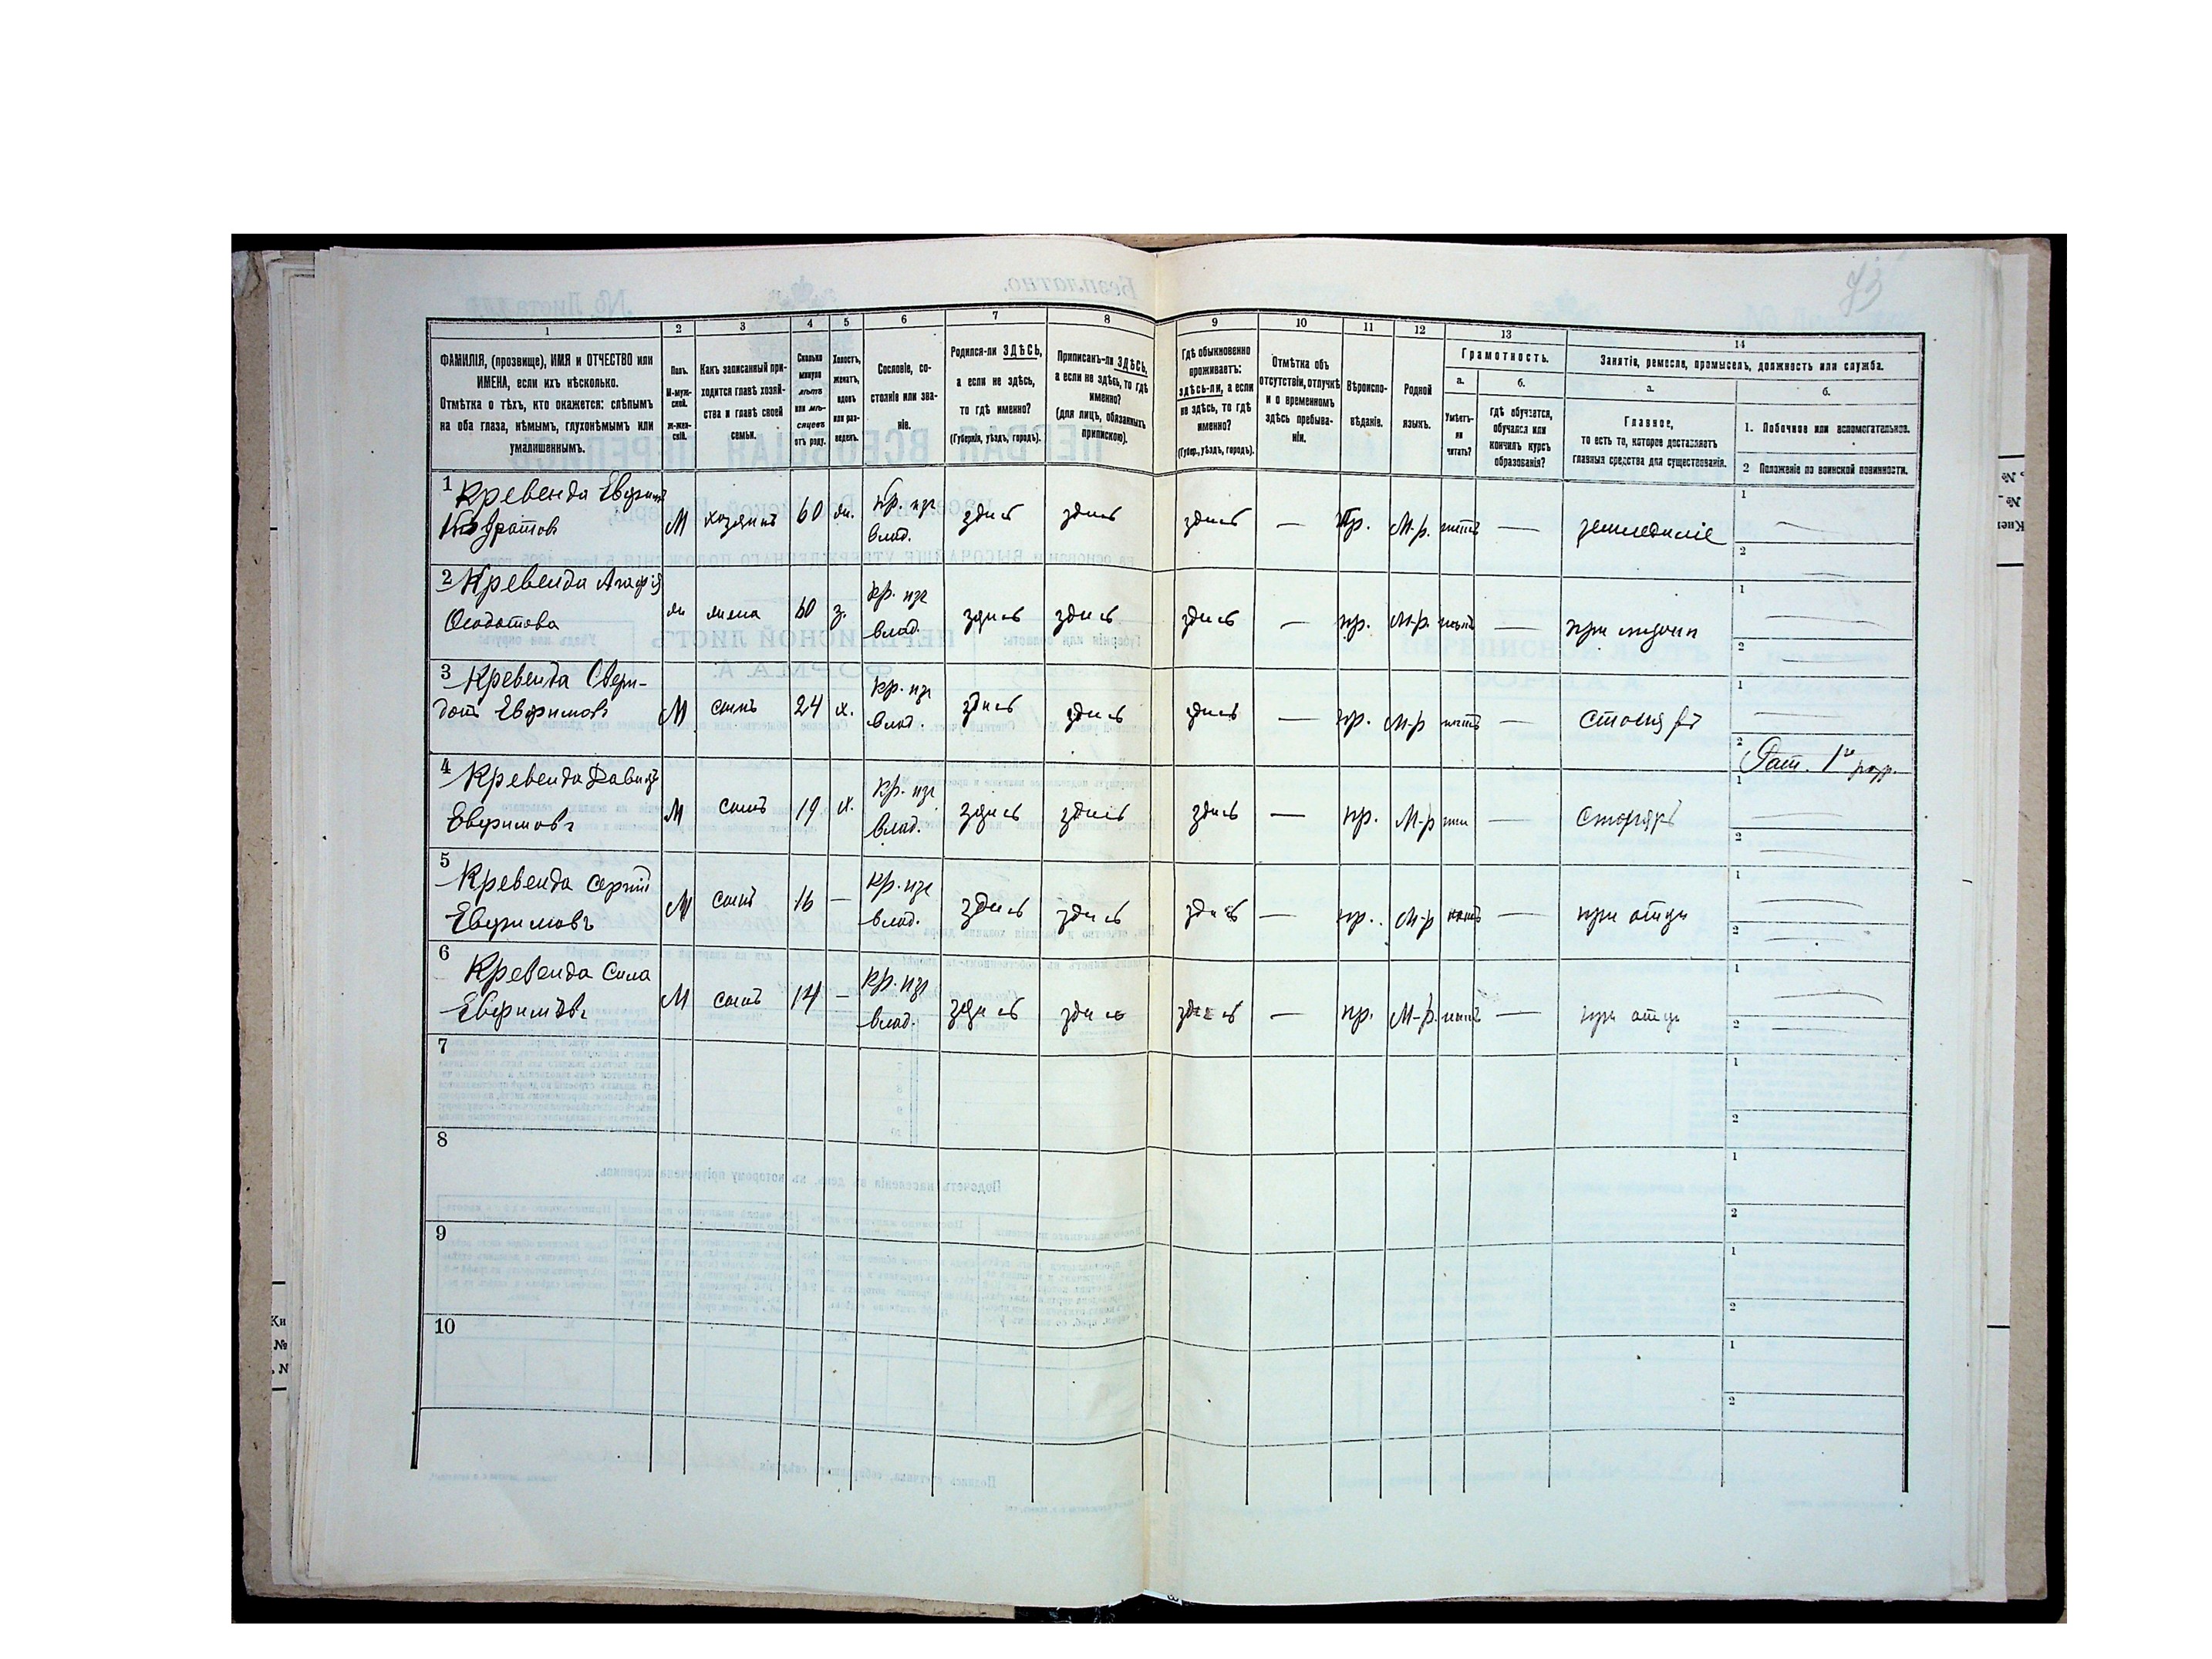 73
1 2 3 4 5 6 7 8 9 10 11 12 13 14
ФАМИЛІЯ, (прозвище), ИМЯ и ОТЧЕСТВО или
ИМЕНА, если ихъ нѣсколько.
Отмѣтка о тѣхъ, кто окажется: слѣпымъ
на оба глаза, нѣмымъ, глухонѣмымъ или
умалишеннымъ.
Полъ.
М-муж-
ской.
ж-жен-
скій.
Какъ записанный при-
ходится главѣ хозяй-
ства и главѣ своей
семьи.
Сколько
минуло
лѣтъ
или мѣ-
сяцевъ
отъ роду.
Холостъ,
женатъ,
вдовъ
или раз-
веденъ.
Сословіе, со-
стояніе или зва-
ніе.
Родился-ли ЗДѢСЬ,
а если не здѣсь,
то гдѣ именно?
(Губернія, уѣздъ, городъ).
Приписанъ-ли ЗДѢСЬ,
а если не здѣсь, то гдѣ
именно?
(для лицъ, обязанныхъ
припискою).
Гдѣ обыкновенно
проживаетъ:
здѣсь-ли, а если
не здѣсь, то гдѣ
именно?
(Губер., уѣздъ, городъ).
Отмѣтка объ
отсутствіи, отлучкѣ
и о временномъ
здѣсь пребыва-
ніи.
Вѣроиспо-
вѣданіе.
Родной
языкъ.
Грамотность.
а.
Умѣетъ-
ли
читать?
б.
гдѣ обучается,
обучался или
кончилъ курсъ
образованія?
Занятіе, ремесло, промыселъ, должность или служба.
а.
Главное,
то есть то, которое доставляетъ
главныя средства для существованія.
б.
1. Побочное или вспомогательное.
2 Положеніе по воинской повинности.
1 Кревенда
М хозяинъ 60 ж. кр. изъ влад. здись здись здись — пр. М-р. нитъ — земледиліе 1 — 2 —
2 Кревенда Агафія
Ѳеодотова
ж жена 60 з. кр. изъ влад. здись здись здись — пр. М-р. нитъ — при мужи 1 — 2 —
3 Кревенда Свири-
донъ Евфимовъ
М сынъ 24 х. кр. изъ влад. здись здись здись — пр. М-р нитъ — столяръ 1 — 2 Рат. 1го разр.
4 Кревенда Давидъ
Евфимовъ
М сынъ 19 х. кр. изъ влад. здись здись здись — пр. М-р — столяръ 1 — 2 —
5 Кревенда Сергій
Евфимовъ
М сынъ 16 — кр. изъ влад. здись здись здись — пр. М-р нитъ — при отци 1 — 2 —
6 Кревенда Сила
Евфимовъ
М сынъ 14 — кр. изъ влад. здись здись здись — пр. М-р. нитъ — при отци 1 — 2 —
7 1 2
8 1 2
9 1 2
10 1 2